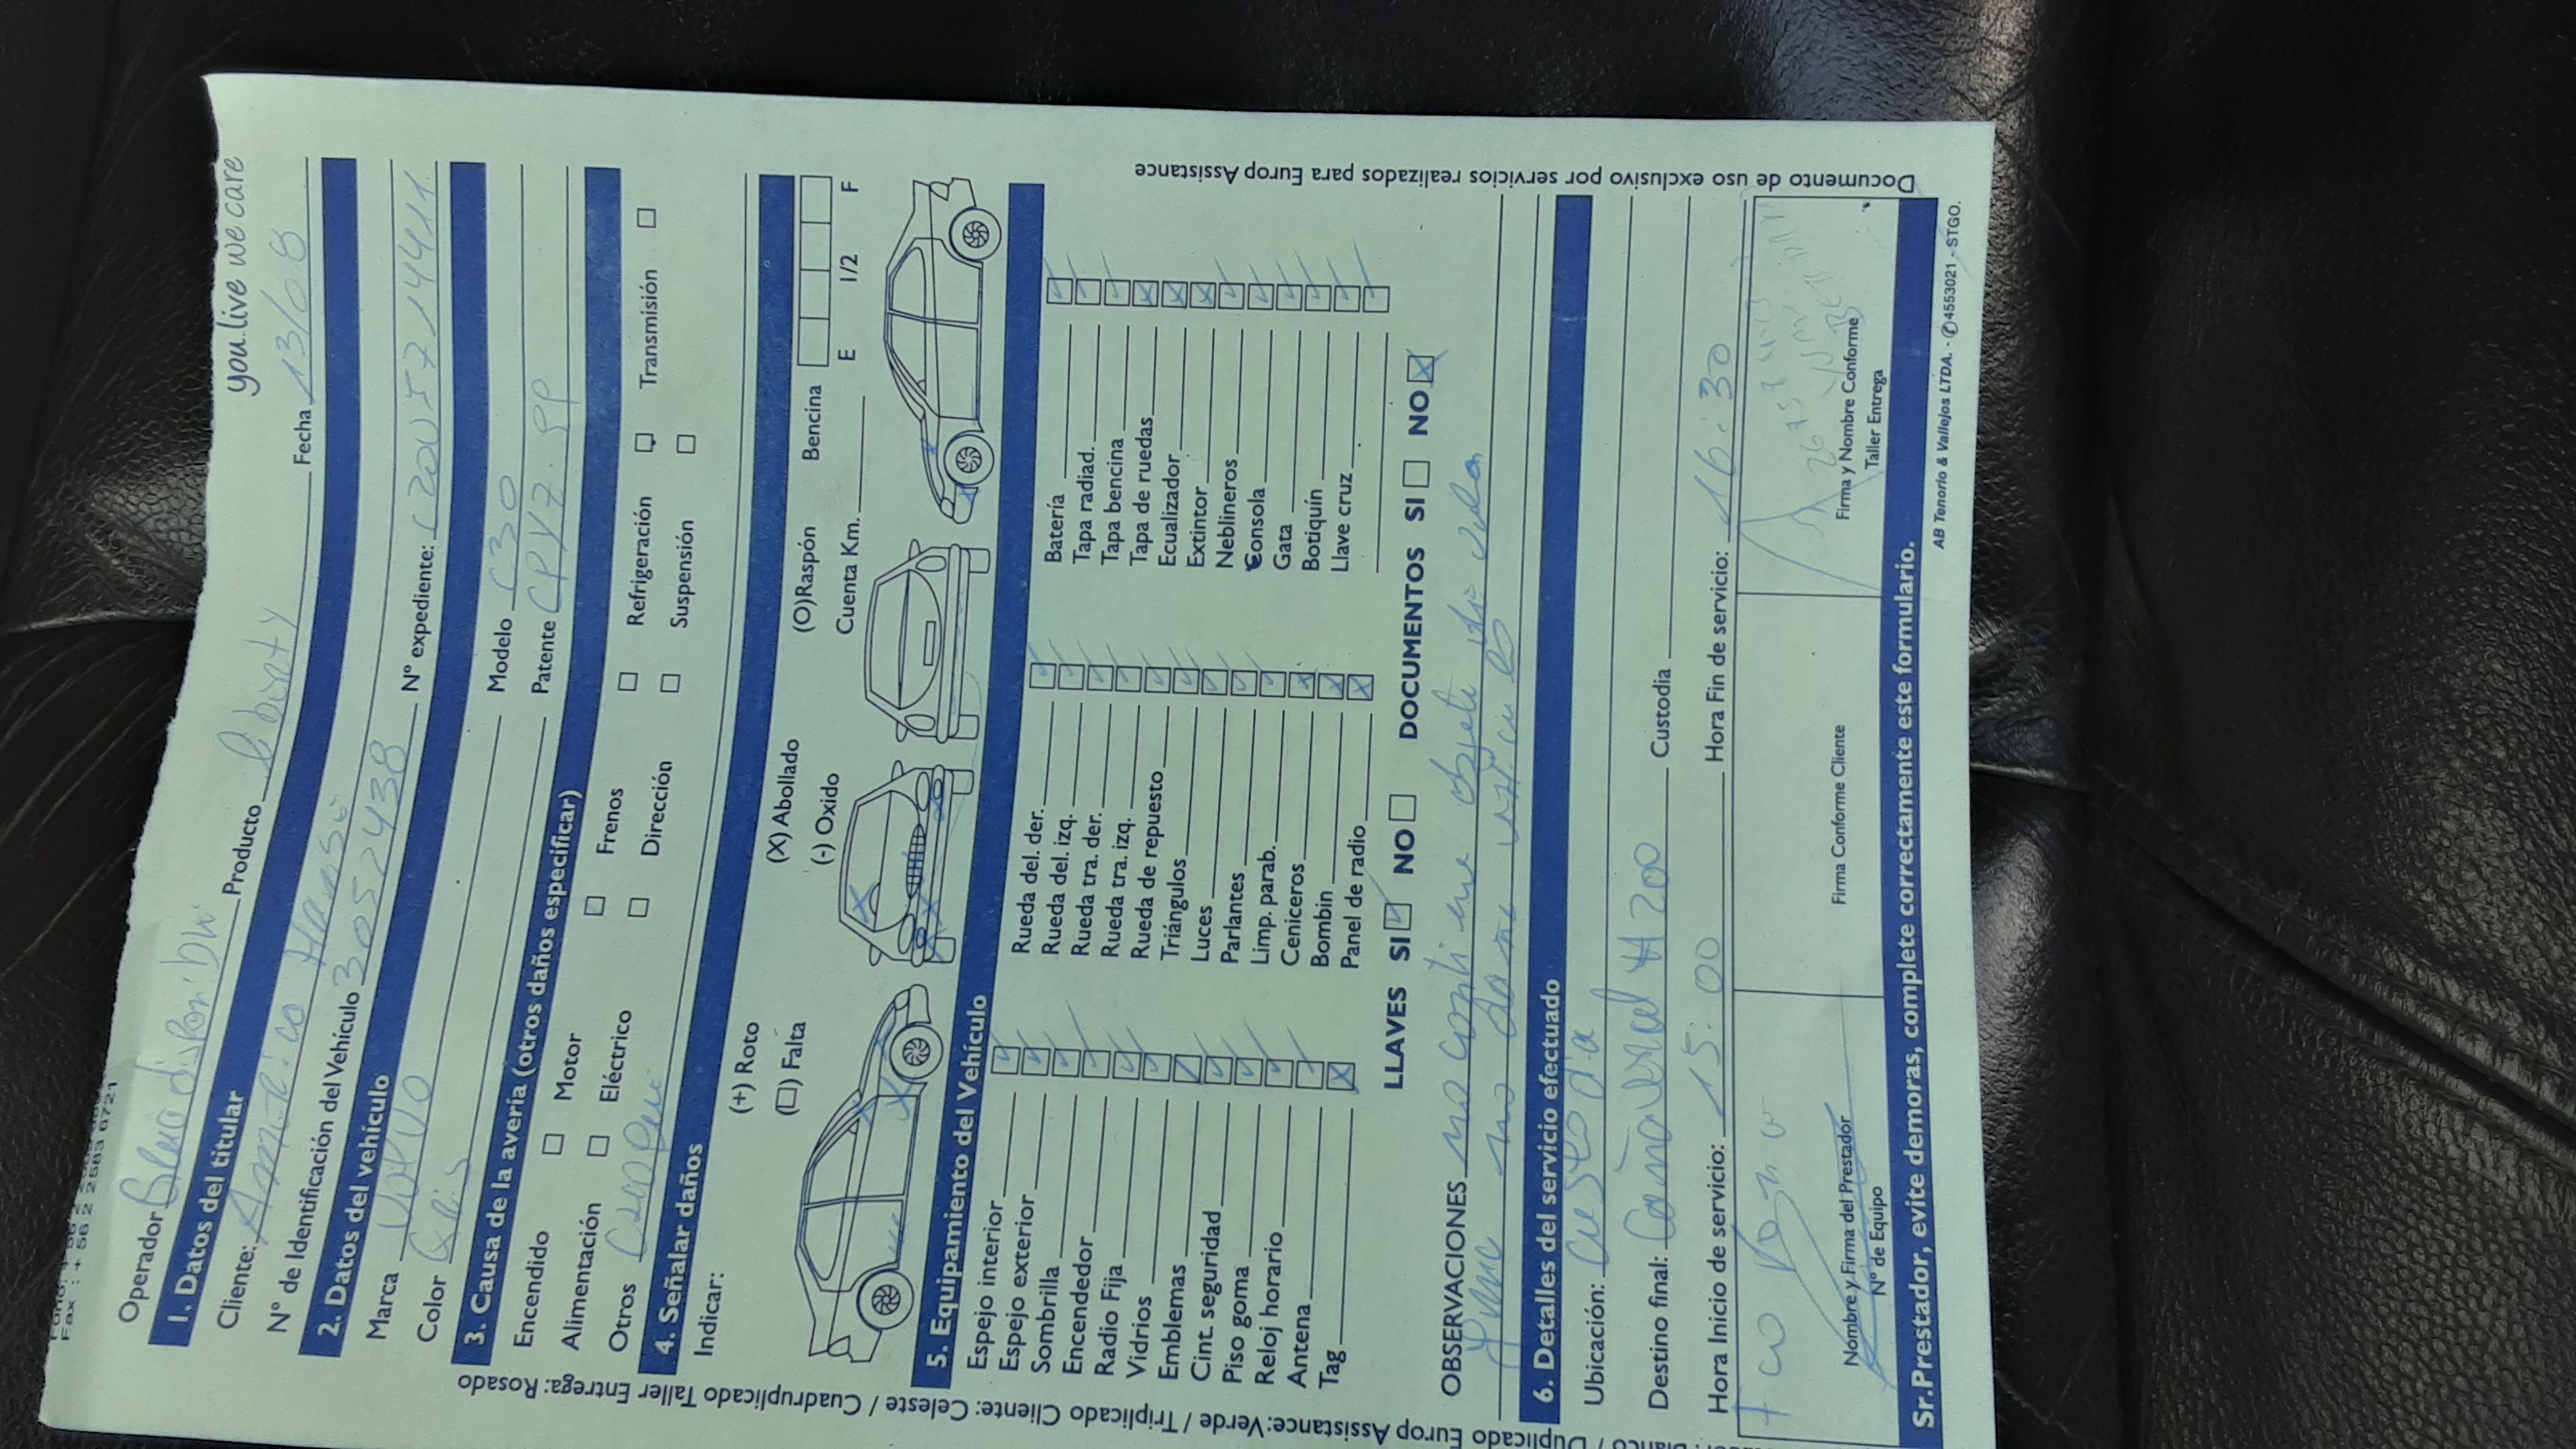 Fax : + 56 2 2583 6721
you live we care
Operador Producto Liberty Fecha 13/08
1. Datos del titular
Cliente: Americo
N° de Identificación del Vehículo 3052438 N° expediente:
2. Datos del vehículo
Marca Volvo Modelo C30
Color Gris Patente
3. Causa de la avería (otros daños especificar)
Encendido Motor Frenos Refrigeración Transmisión
Alimentación Eléctrico Dirección Suspensión
Otros
4. Señalar daños
Indicar: (+) Roto (X) Abollado (O)Raspón Bencina
(☐) Falta (-) Oxido Cuenta Km. E 1/2 F
5. Equipamiento del Vehículo
Espejo interior Rueda del. der. Batería
Espejo exterior Rueda del. izq. Tapa radiad.
Sombrilla Rueda tra. der. Tapa bencina
Encendedor Rueda tra. izq. Tapa de ruedas
Radio Fija Rueda de repuesto Ecualizador
Vidrios Triángulos Extintor
Emblemas Luces Neblineros
Cint. seguridad Parlantes Consola
Piso goma Limp. parab. Gata
Reloj horario Ceniceros Botiquín
Antena Bombin Llave cruz
Tag Panel de radio
LLAVES SI NO DOCUMENTOS SI NO
OBSERVACIONES no contiene objeto de valor
no
6. Detalles del servicio efectuado
Ubicación:
Destino final: # 200 Custodia
Hora Inicio de servicio: 15:00 Hora Fin de servicio: 16:30
Nombre y Firma del Prestador
N° de Equipo
Firma Conforme Cliente
Firma y Nombre Conforme
Taller Entrega
Sr.Prestador, evite demoras, complete correctamente este formulario.
AB Tenorio & Vallejos LTDA. - ✆ 4553021 - STGO.
Documento de uso exclusivo por servicios realizados para Europ Assistance
Duplicado Europ Assistance: Verde / Triplicado Cliente: Celeste / Cuadruplicado Taller Entrega: Rosado